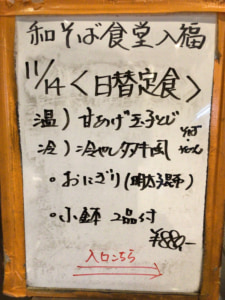 和そば食堂入福
11/14<日替定食>
温)甘あげ玉子とじ
冷)冷やし
・おにぎり(明太子昆布)
・小鉢2品付
¥880,-
入口こちら